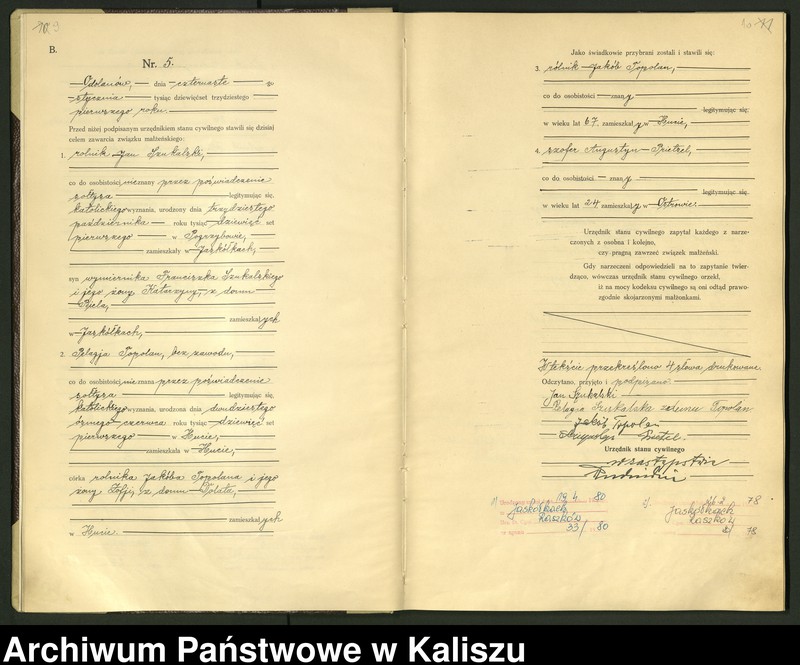 B.
Nr. 5.
Odolanów, dnia czterwarte go
stycznia tysiąc dziewięćset trzydziestego
pierwszego roku.
Przed niżej podpisanym urzędnikiem stanu cywilnego stawili się dzisiaj
celem zawarcia związku małżeńskiego:
1. rolnik Jan Szukalski,
co do osobistości, nieznany przez poświadczenie
sołtysa legitymując się.
katolickiego wyznania, urodzony dnia trzydziestego
października roku tysiąc dziewięć set
pierwszego w Pogrzybowie,
zamieszkały w Jaskółkach,
syn wymiernika Franciszka Szukalskiego
i jego żony Katarzyny, z domu
zamieszkałych
w Jaskółkach,
2. Pelagja Topolan, bez zawodu,
co do osobistości, nieznana przez poświadczenie
sołtysa legitymując się.
katolickiego wyznania, urodzona dnia dwudziestego
ósmego czerwca roku tysiąc dziewięć set
pierwszego w Hucie,
zamieszkała w Hucie,
córka rolnika Jakóba Topolana i jego
żony Zofji, z domu
zamieszkałych
w Hucie.
Jako świadkowie przybrani zostali i stawili się:
3. rólnik Jakób Topolan,
co do osobistości znany
legitymując się.
w wieku lat 67, zamieszkały w Hucie,
4. szofer Augustyn
co do osobistości znany
legitymując się.
w wieku lat 24 zamieszkały w Ostrowie.
Urzędnik stanu cywilnego zapytał każdego z narze-
czonych z osobna i kolejno,
czy pragną zawrzeć związek małżeński.
Gdy narzeczeni odpowiedzieli na to zapytanie twier-
dząco, wówczas urzędnik stanu cywilnego orzekł,
iż na mocy kodeksu cywilnego są oni odtąd prawo-
zgodnie skojarzonymi małżonkami.
W tekście przekreślono 4 słowa drukowane.
Odczytano, przyjęto i podpisano:
Jan Szukalski
Pelagia Szukalska z domu Topolan
Jakób Topolan
Urzędnik stanu cywilnego
w zastępstwie
19.4. 80
Jaskółkach
Raszków
33/ 80
78
Jaskółkach
Raszków
78
Archiwum Państwowe w Kaliszu